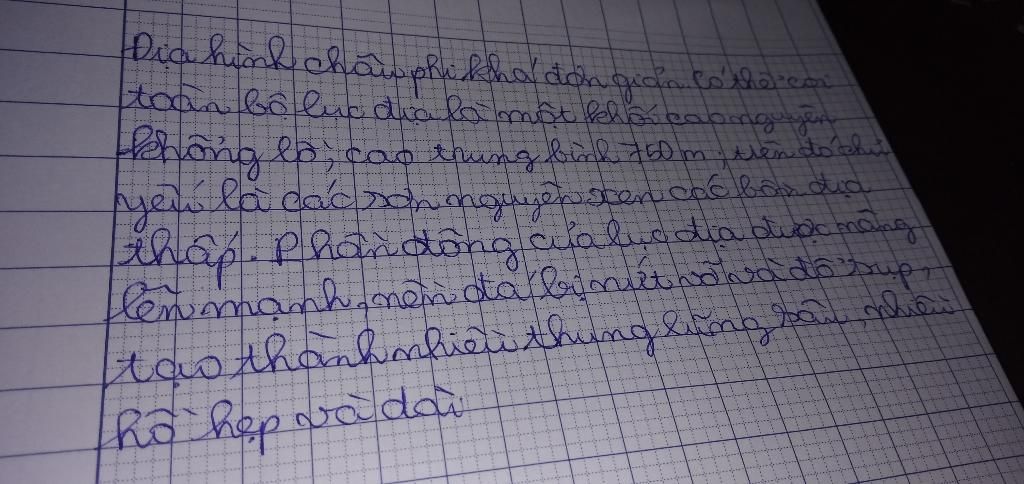 Địa hình châu phi khá đơn giản có thể coi
toàn bộ lục địa là một khối cao nguyên
khổng lồ, cao trung bình 750 m, trên đó chủ
yếu là các sơn nguyên xen các bồn địa
thấp. Phần đông của lục địa được nâng
lên mạnh, nền đá bị nứt vỡ và đổ sụp,
tạo thành nhiều thung lũng sâu, nhiều
hồ hẹp và dài